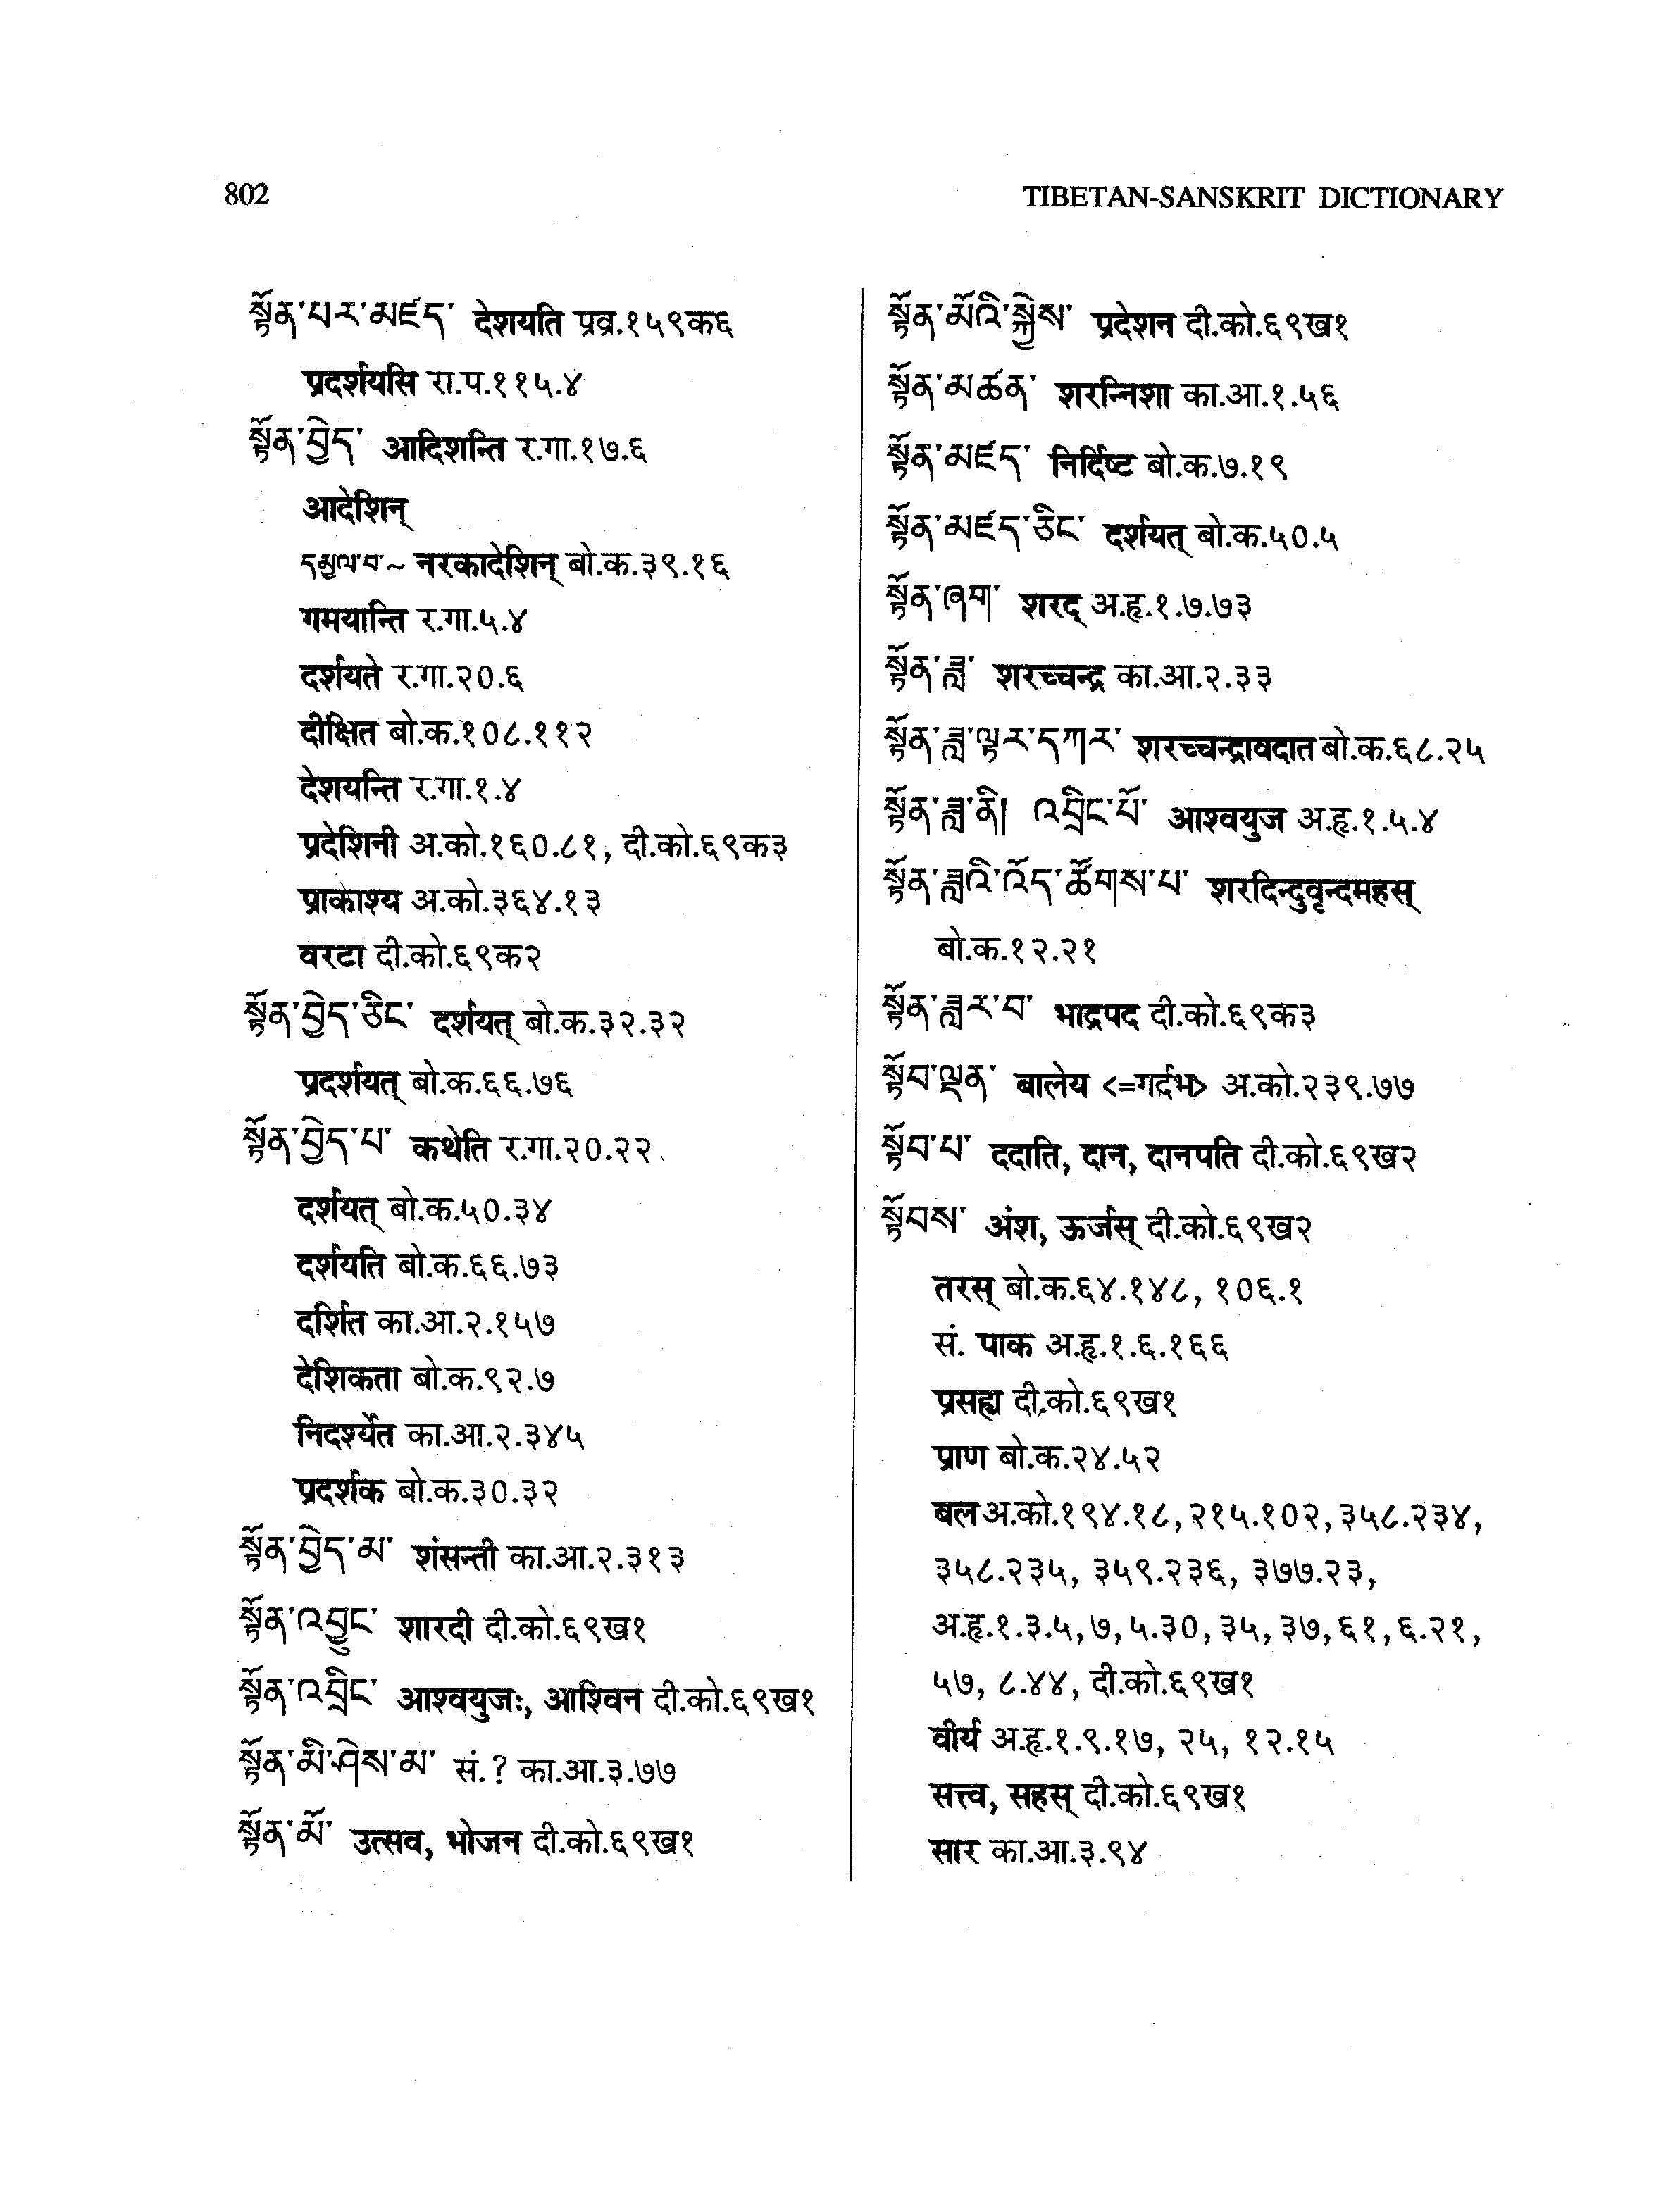 802
TIBETAN-SANSKRIT DICTIONARY
སྟོན་པར་མཛད་ देशयति प्रव्र.१५९क६
प्रदर्शयसि रा.प.११५.४
སྟོན་བྱེད་ आदिशन्ति र.गा.१७.६
आदेशिन्
དམྱལ་བ་~ नरकादेशिन् बो.क.३९.१६
गमयान्ति र.गा.५.४
दर्शयते र.गा.२०.६
दीक्षित बो.क.१०८.११२
देशयन्ति र.गा.१.४
प्रदेशिनी अ.को.१६०.८१, दी.को.६९क३
प्राकाश्य अ.को.३६४.१३
वरटा दी.को.६९क२
སྟོན་བྱེད་ཅིང་ दर्शयत् बो.क.३२.३२
प्रदर्शयत् बो.क.६६.७६
སྟོན་བྱེད་པ་ कथेति र.गा.२०.२२
दर्शयत् बो.क.५०.३४
दर्शयति बो.क.६६.७३
दर्शित का.आ.२.१५७
देशिकता बो.क.९२.७
निदर्श्यते का.आ.२.३४५
प्रदर्शक बो.क.३०.३२
སྟོན་བྱེད་མ་ शंसन्ती का.आ.२.३१३
སྟོན་འབྱུང་ शारदी दी.को.६९ख१
སྟོན་འབྲིང་ आश्वयुजः, आश्विन दी.को.६९ख१
སྟོན་མི་ཤེས་མ་ सं.? का.आ.३.७७
སྟོན་མོ་ उत्सव, भोजन दी.को.६९ख१
སྟོན་མོའི་སྐྱེས་ प्रदेशन दी.को.६९ख१
སྟོན་མཚན་ शरन्निशा का.आ.१.५६
སྟོན་མཛད་ निर्दिष्ट बो.क.७.१९
སྟོན་མཛད་ཅིང་ दर्शयत् बो.क.५०.५
སྟོན་ཞག་ शरद् अ.हृ.१.७.७३
སྟོན་ཟླ་ शरच्चन्द्र का.आ.२.३३
སྟོན་ཟླ་ལྟར་དཀར་ शरच्चन्द्रावदात बो.क.६८.२५
སྟོན་ཟླ་ནི། འབྲིང་པོ་ आश्वयुज अ.हृ.१.५.४
སྟོན་ཟླའི་འོད་ཚོགས་པ་ शरदिन्दुवृन्दमहस्
बो.क.१२.२१
སྟོན་ཟླར་བ་ भाद्रपद दी.को.६९क३
སྟོབ་ལྡན་ बालेय <=गर्दभ> अ.को.२३९.७७
སྟོབ་པ་ ददाति, दान, दानपति दी.को.६९ख२
སྟོབས་ अंश, ऊर्जस् दी.को.६९ख२
तरस् बो.क.६४.१४८, १०६.१
सं. पाक अ.हृ.१.६.१६६
प्रसह्य दी.को.६९ख१
प्राण बो.क.२४.५२
बल अ.को.१९४.१८, २१५.१०२, ३५८.२३४,
३५८.२३५, ३५९.२३६, ३७७.२३,
अ.हृ.१.३.५, ७, ५.३०, ३५, ३७, ६१, ६.२१,
५७, ८.४४, दी.को.६९ख१
वीर्य अ.हृ.१.९.१७, २५, १२.१५
सत्त्व, सहस् दी.को.६९ख१
सार का.आ.३.९४